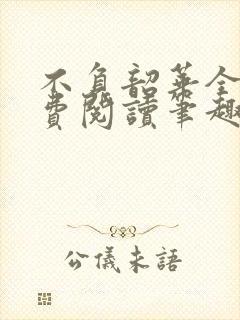 不負韶華全
費閱讀筆趣
公儀未語